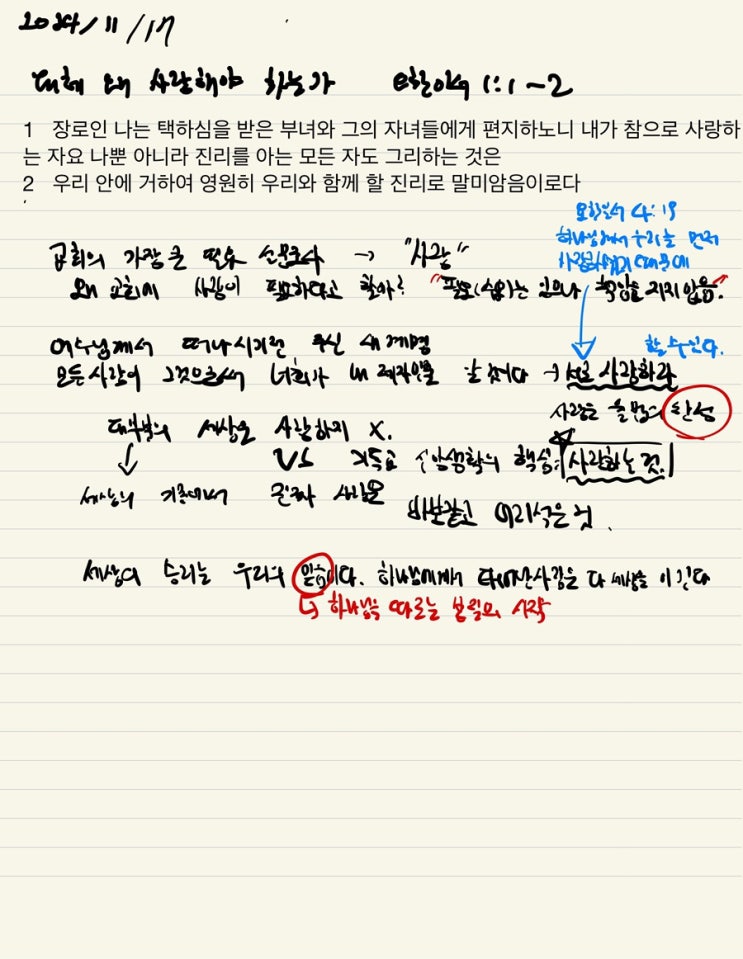 2024/11/17
대체 왜 사랑해야 하는가 요한이서 1:1~2
1 장로인 나는 택하심을 받은 부녀와 그의 자녀들에게 편지하노니 내가 참으로 사랑하
는 자요 나뿐 아니라 진리를 아는 모든 자도 그리하는 것은
2 우리 안에 거하여 영원히 우리와 함께 할 진리로 말미암음이로다
4:19
하나님께서 우리를 먼저
사랑하셨기 때문에
교회의 가장 큰 필요 → "사랑"
왜 교회에 사랑이 필요하다고 할까? 있으나 책임을 지지 않음."
예수님께서 떠나시기전 주신 새 계명 할 수 있다.
모든 사람이 그것으로써 너희가 내 제자인줄 알 것이다 → 서로 사랑하라
사랑은 율법의 완성
대부분의 세상은 사랑하지 X.
↓ VS 기독교 신앙생활의 핵심: 사랑하는 것.
세상의 기준에서 진짜 사랑은 바보같고 어리석은 것.
세상의 승리는 우리의 믿음이다. 하나님에게서 다 세상을 이긴다
↳ 하나님을 따르는 시작